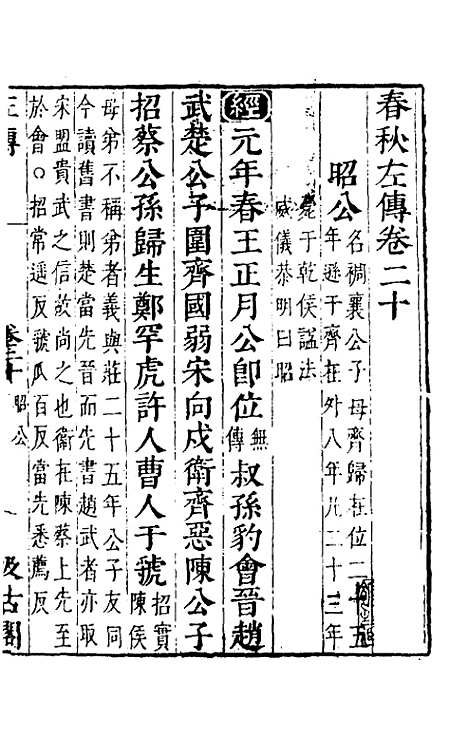 春秋左傳卷二十
昭公
名裯襄公子母齊歸在位二十五
年遜于齊在外八年凡三十三年
薨于乾侯諡法
威儀恭明曰昭
經元年春王正月公卽位
無
傳
叔孫豹會晉趙
武楚公子圍齊國弱宋向戌衛齊惡陳公子
招蔡公孫歸生鄭罕虎許人曹人于虢
招實
陳侯
母弟不稱弟者義與莊二十五年公子友同
今讀舊書則楚當先晉而先書趙武者亦取
宋盟貴武之信故尚之也衛在陳蔡上先至
於會○招常遥反虢瓜百反當先悉薦反
左傳
卷二十
昭公
一
汲古閣